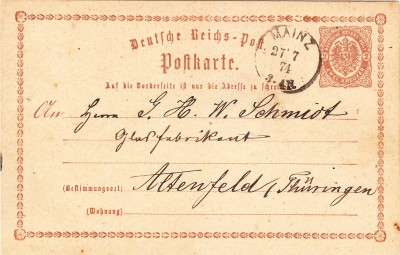 Deutsche Reichs-Post
Postkarte.
MAINZ
27 7
74
3-4N.
Auf die Vorderseite ist nur die Adresse zu schreiben
An Herrn G. H. W. Schmidt
Glasfabrikant
(Bestimmungsort) Altenfeld / Thüringen
(Wohnung)